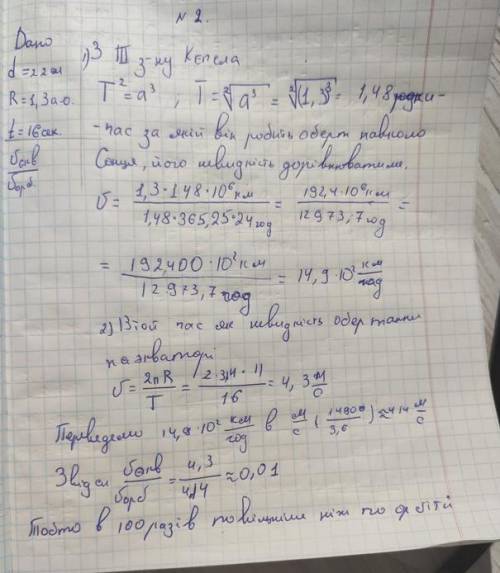 № 2.
Дано
d = 22 м
R = 1,3 а.о.
t = 16 сек.
σекв / σорб.
1) З III з-ну Кепела
T² = a³ , T = ²√a³ = ²√(1,3)³ = 1,48 роки -
- час за який він робить оберт навколо
Сонця, його швидкість дорівнюватиме.
σ = 1,3 · 148 · 10⁶ км / 1,48 · 365,25 · 24 год = 192,4 · 10⁶ км / 12973,7 год =
= 192,400 · 10² км / 12973,7 год = 14,9 · 10² км/год
2) В той час як швидкість обертання
на екваторі
σ = 2πR / T = 2 · 3,14 · 11 / 16 = 4,3 м/с
Переведемо 14,9 · 10² км/год в м/с (14900 / 3,6) ≈ 414 м/с
Звідси σекв / σорб = 4,3 / 414 ≈ 0,01
Тобто в 100 разів повільніше ніж по орбіті